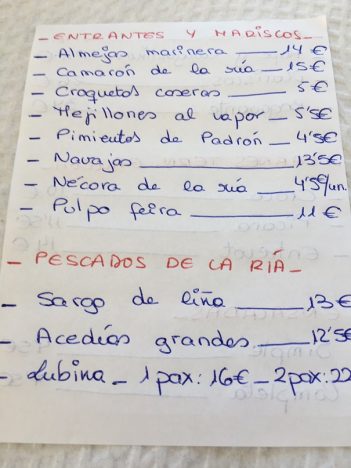 - ENTRANTES Y MARISCOS -
- Almejas marinera — 14 €
- Camarón de la ría — 15€
- Croquetas caseras — 5 €
- Mejillones al vapor - 5'5€
- Pimientos de Padrón - 4'5€
- Navajas — 13'5€
- Nécora de la ría — 4'5€/un.
- Pulpo feira — 11 €
- PESCADOS DE LA RÍA -
- Sargo de liña — 13€
- Acedías grandes — 12'5€
- Lubina - 1 pax: 16€ - 2 pax: 22